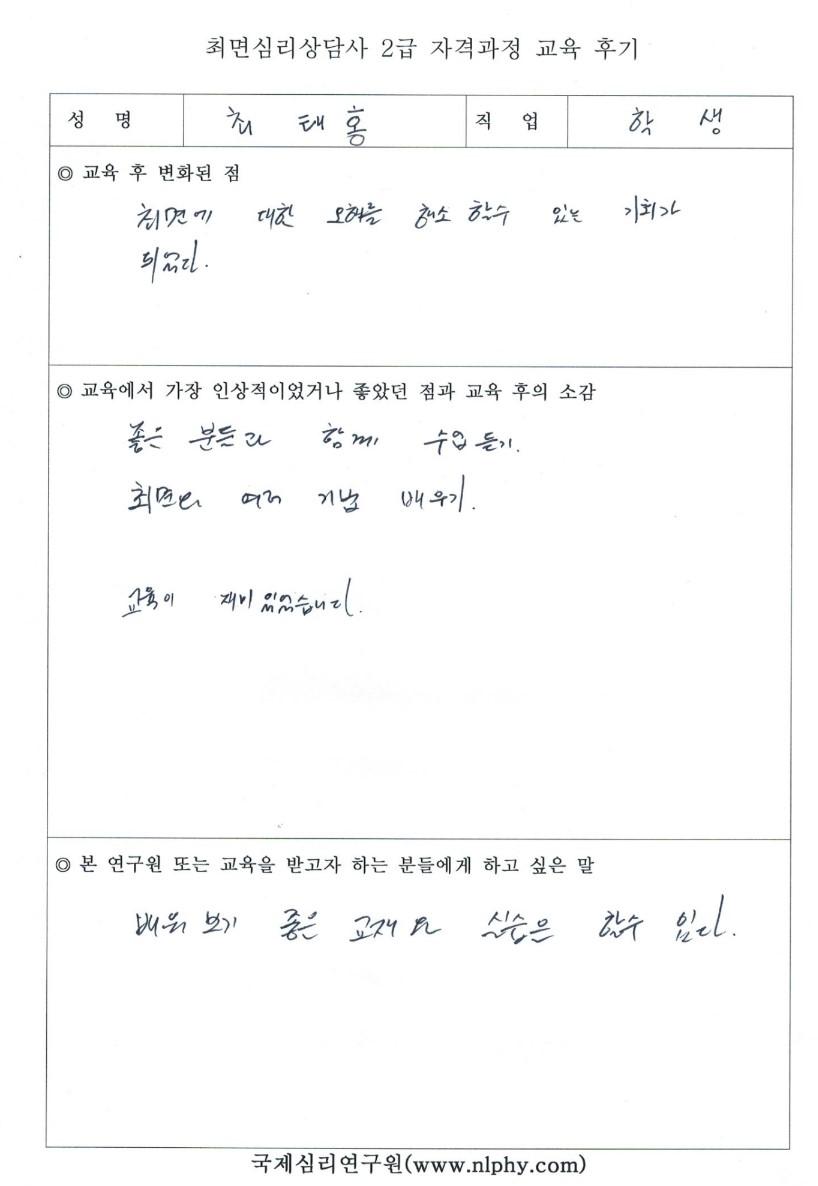 최면심리상담사 2급 자격과정 교육 후기
성 명 최 태홍 직 업 학 생
◎ 교육 후 변화된 점
최면에 대한 오해를 해소 할수 있는 기회가
되었다.
◎ 교육에서 가장 인상적이었거나 좋았던 점과 교육 후의 소감
좋은 분들과 함께 수업 듣기.
최면의 여러 기법 배우기.
교육이 재미 있었습니다.
◎ 본 연구원 또는 교육을 받고자 하는 분들에게 하고 싶은 말
배워 보기 좋은 교재와 실습은 할수 있다.
국제심리연구원(www.nlphy.com)